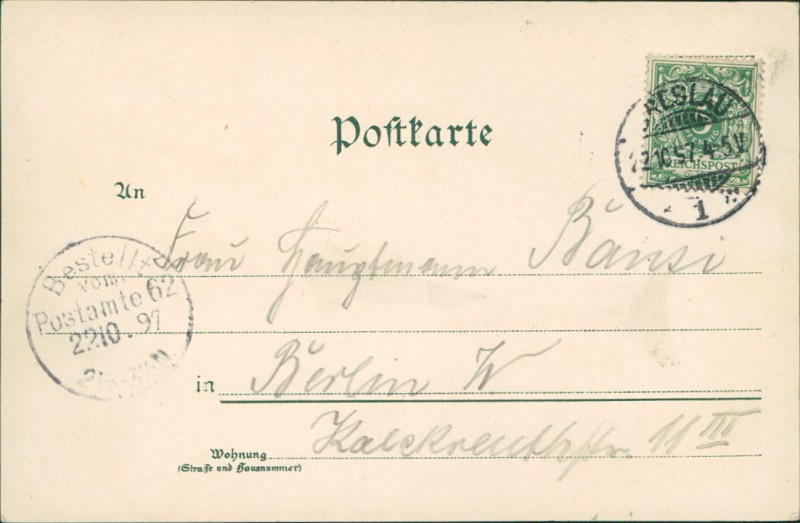 Postkarte
RESLAU
22.10.97.4-5V.
REICHSPOST
1
An
Frau Hauptmann Bansi
Bestellt
vom
Postamte 62
22.10.97
in Berlin W
Kalckreuthstr. 11 III
Wohnung
(Straße und Hausnummer)